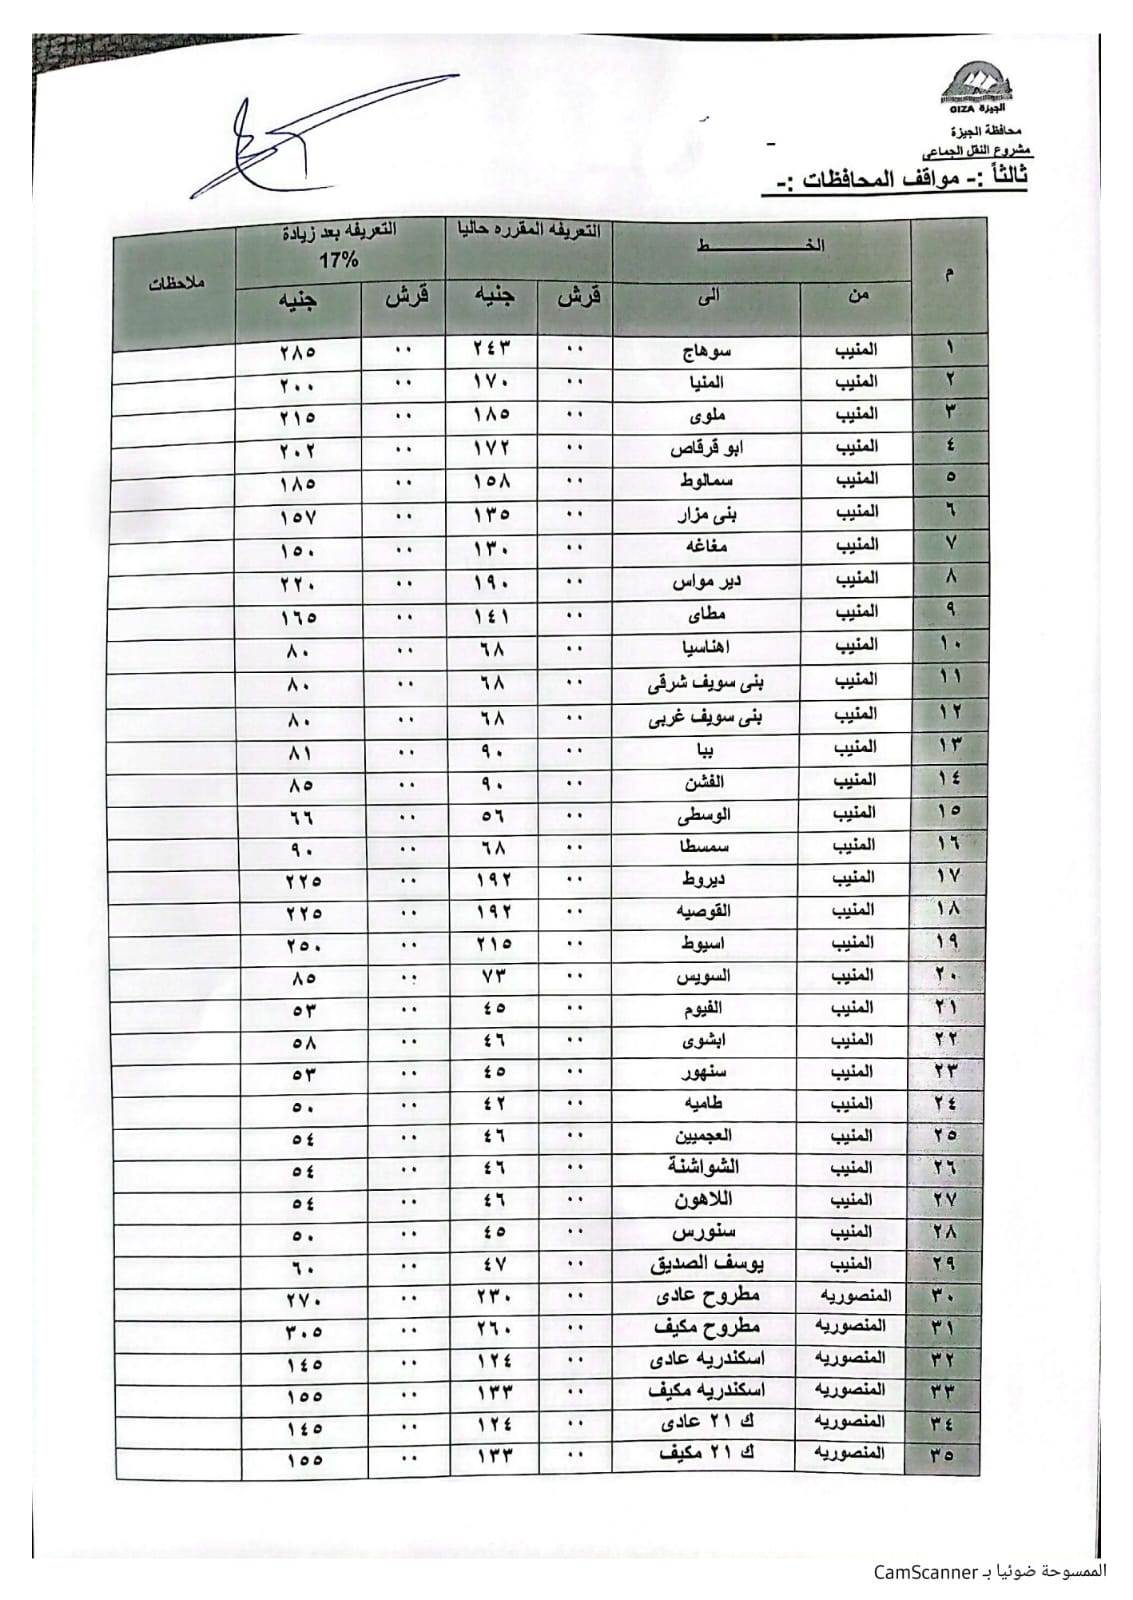 الجيزة GIZA
محافظة الجيزة
مشروع النقل الجماعى
ثالثاً :- مواقف المحافظات :-
م الخــــــــــــط التعريفه المقرره حاليا التعريفه بعد زيادة 17% ملاحظات
من الى قرش جنيه قرش جنيه
١ المنيب سوهاج ٠٠ ٢٤٣ ٠٠ ٢٨٥
٢ المنيب المنيا ٠٠ ١٧٠ ٠٠ ٢٠٠
٣ المنيب ملوى ٠٠ ١٨٥ ٠٠ ٢١٥
٤ المنيب ابو قرقاص ٠٠ ١٧٢ ٠٠ ٢٠٢
٥ المنيب سمالوط ٠٠ ١٥٨ ٠٠ ١٨٥
٦ المنيب بنى مزار ٠٠ ١٣٥ ٠٠ ١٥٧
٧ المنيب مغاغه ٠٠ ١٣٠ ٠٠ ١٥٠
٨ المنيب دير مواس ٠٠ ١٩٠ ٠٠ ٢٢٠
٩ المنيب مطاى ٠٠ ١٤١ ٠٠ ١٦٥
١٠ المنيب اهناسيا ٠٠ ٦٨ ٠٠ ٨٠
١١ المنيب بنى سويف شرقى ٠٠ ٦٨ ٠٠ ٨٠
١٢ المنيب بنى سويف غربى ٠٠ ٦٨ ٠٠ ٨٠
١٣ المنيب ببا ٠٠ ٩٠ ٠٠ ٨١
١٤ المنيب الفشن ٠٠ ٩٠ ٠٠ ٨٥
١٥ المنيب الوسطى ٠٠ ٥٦ ٠٠ ٦٦
١٦ المنيب سمسطا ٠٠ ٦٨ ٠٠ ٩٠
١٧ المنيب ديروط ٠٠ ١٩٢ ٠٠ ٢٢٥
١٨ المنيب القوصيه ٠٠ ١٩٢ ٠٠ ٢٢٥
١٩ المنيب اسيوط ٠٠ ٢١٥ ٠٠ ٢٥٠
٢٠ المنيب السويس ٠٠ ٧٣ ٠٠ ٨٥
٢١ المنيب الفيوم ٠٠ ٤٥ ٠٠ ٥٣
٢٢ المنيب ابشوى ٠٠ ٤٦ ٠٠ ٥٨
٢٣ المنيب سنهور ٠٠ ٤٥ ٠٠ ٥٣
٢٤ المنيب طاميه ٠٠ ٤٢ ٠٠ ٥٠
٢٥ المنيب العجميين ٠٠ ٤٦ ٠٠ ٥٤
٢٦ المنيب الشواشنة ٠٠ ٤٦ ٠٠ ٥٤
٢٧ المنيب اللاهون ٠٠ ٤٦ ٠٠ ٥٤
٢٨ المنيب سنورس ٠٠ ٤٥ ٠٠ ٥٠
٢٩ المنيب يوسف الصديق ٠٠ ٤٧ ٠٠ ٦٠
٣٠ المنصوريه مطروح عادى ٠٠ ٢٣٠ ٠٠ ٢٧٠
٣١ المنصوريه مطروح مكيف ٠٠ ٢٦٠ ٠٠ ٣٠٥
٣٢ المنصوريه اسكندريه عادى ٠٠ ١٢٤ ٠٠ ١٤٥
٣٣ المنصوريه اسكندريه مكيف ٠٠ ١٣٣ ٠٠ ١٥٥
٣٤ المنصوريه ك ٢١ عادى ٠٠ ١٢٤ ٠٠ ١٤٥
٣٥ المنصوريه ك ٢١ مكيف ٠٠ ١٣٣ ٠٠ ١٥٥
الممسوحة ضوئيا بـ CamScanner